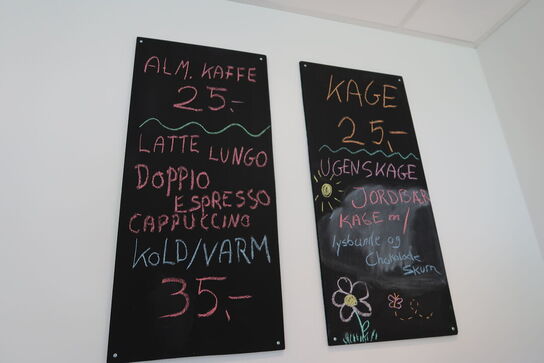 ALM. KAFFE
25.-
LATTE LUNGO
DOPPIO
ESPRESSO
CAPPUCCINO
KOLD/VARM
35.-
KAGE
25.-
UGENSKAGE
JORDBÆR
KAGE m/
lysbunde og
Chokolade
Skum